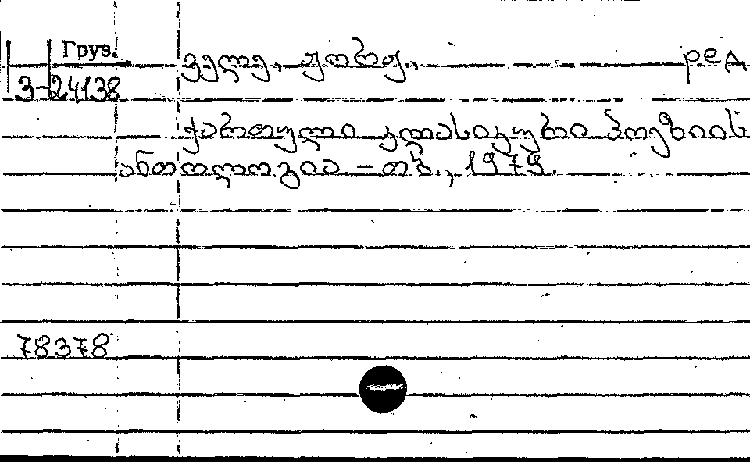 Груз.
3-24138
ველე., ჟორჟ., ред
ქართული კლასიკური პოეზიის
ანთოლოგია — თბ., 1979.
78378